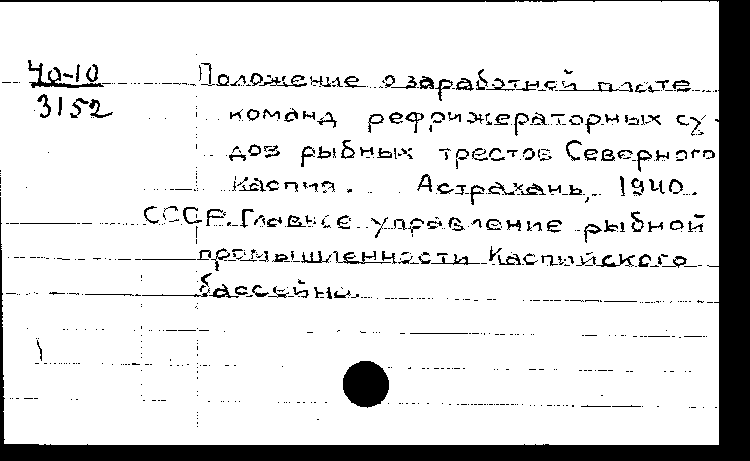 40-10
3152
Положение о заработной плате
команд рефрижераторных су-
дов рыбных трестов Северного
Каспия. Астрахань, 1940.
СССР. Главное управление рыбной
промышленности Каспийского
бассейна.